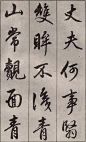 丈夫何事翳
雙眸不清青
山常觀面青